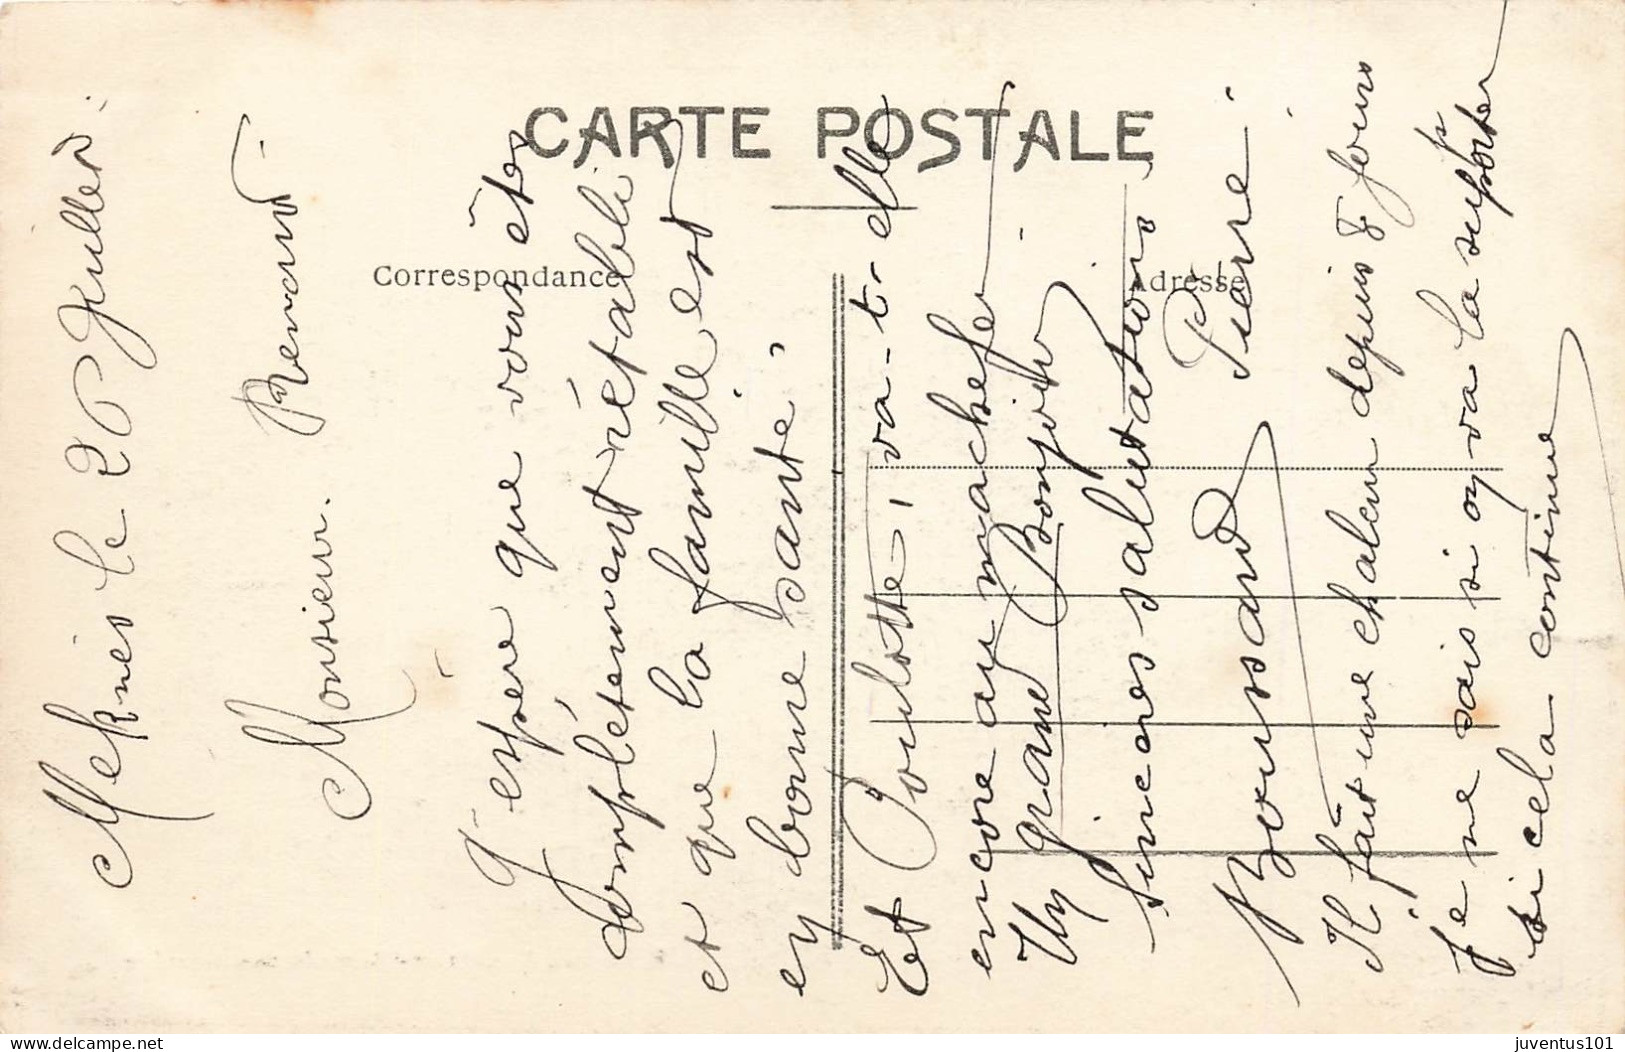 CARTE POSTALE
Correspondance
Adresse
Meknès le 20 Juillet.
Monsieur. Renard.
J'espère que vous êtes
complètement rétabli
et que la famille est
en bonne santé.
Et Poulotte, va-t-elle
encore au machefer
Un grand Bonjour
Sincères salutations
Boussard Pierre.
Il fait une chaleur depuis 8 jours
Je ne sais si on va la supporter
si cela continue
delcampe.net
juventus101